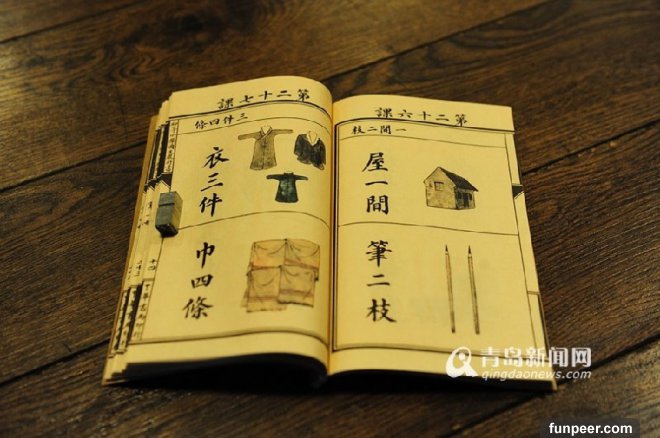 第二十六課
一間二枝
屋一間
筆二枝
第二十七課
三件四條
衣三件
巾四條
青岛新闻网
qingdaonews.com
funpeer.com